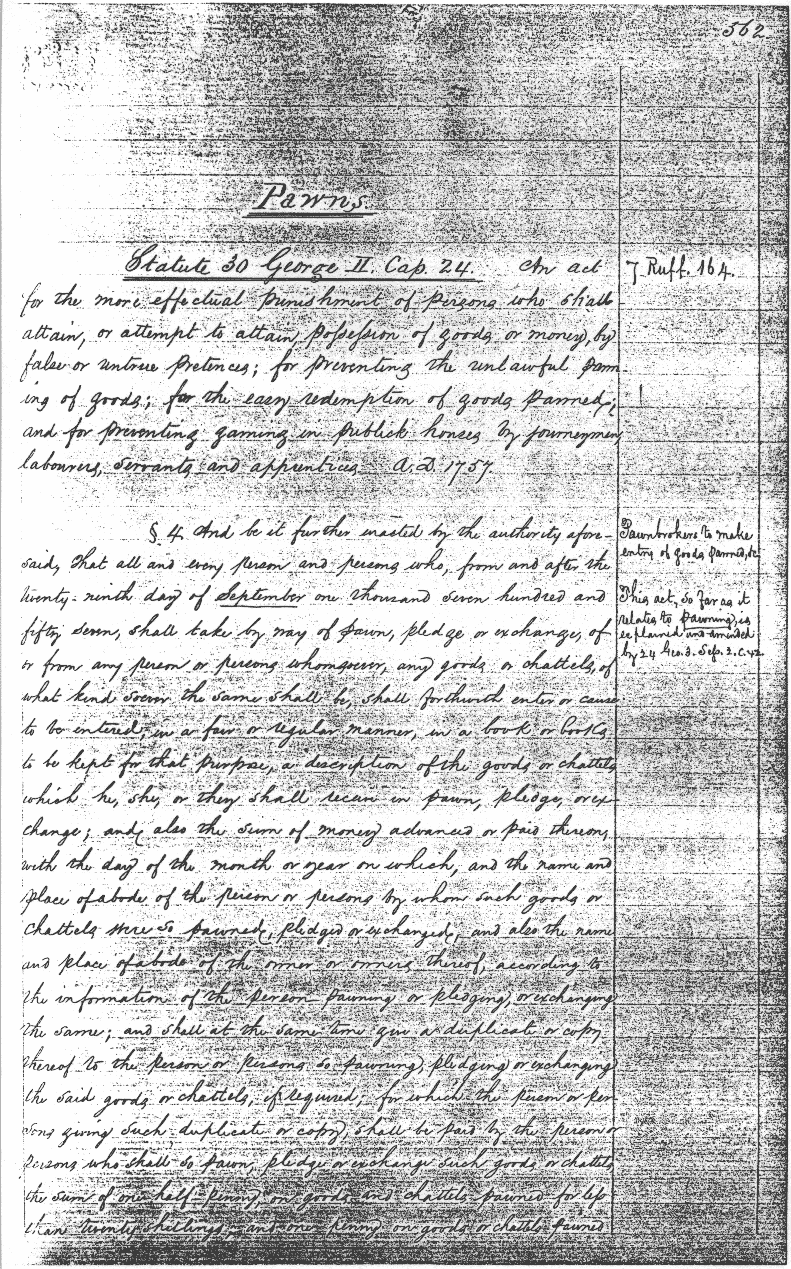 562
Pawns.
Statute 30 George II. Cap. 24. An act
7 Ruff. 164.
for the more effectual punishment of persons who shall
attain, or attempt to attain, possession of goods or money, by
false or untrue pretences; for preventing the unlawful pawn
ing of goods; for the easy redemption of goods pawned;
and for preventing gaming in publick houses by journeymen
labourers, servants and apprentices A.D. 1757.
§ 4. And be it further enacted by the authority afore-
said, That all and every person and persons who, from and after the
twenty-ninth day of September one thousand seven hundred and
fifty seven, shall take by way of pawn, pledge or exchange, of
or from any person or persons whomsoever, any goods or chattels, of
what kind soever the same shall be, shall forthwith enter or cause
to be entered, in a fair or regular manner, in a book or books
to be kept for that purpose, a description of the goods or chattels
which he, she, or they shall receive in pawn, pledge, or ex-
change; and also the sum of money advanced or paid thereon,
with the day of the month or year on which, and the name and
place of abode of the person or persons by whom such goods or
chattels were so pawned, pledged or exchanged, and also the name
and place of abode of the owner or owners thereof, according to
the information of the person pawning or pledging, or exchanging
the same; and shall at the same time give a duplicate or copy
thereof to the person or persons so pawning, pledging or exchanging
the said goods or chattels, if required; for which the person or per
sons giving such duplicate or copy, shall be paid by the person or
persons who shall so pawn, pledge or exchange such goods or chattels
the sum of one half-penny, on goods and chattels pawned for less
than twenty shillings; and one penny on goods or chattels pawned
Pawnbrokers to make
entry of goods pawned, &c
This act, so far as it
relates to pawning, is
explained and amended
by 24 Geo. 3. Sess. 2. C. 42.